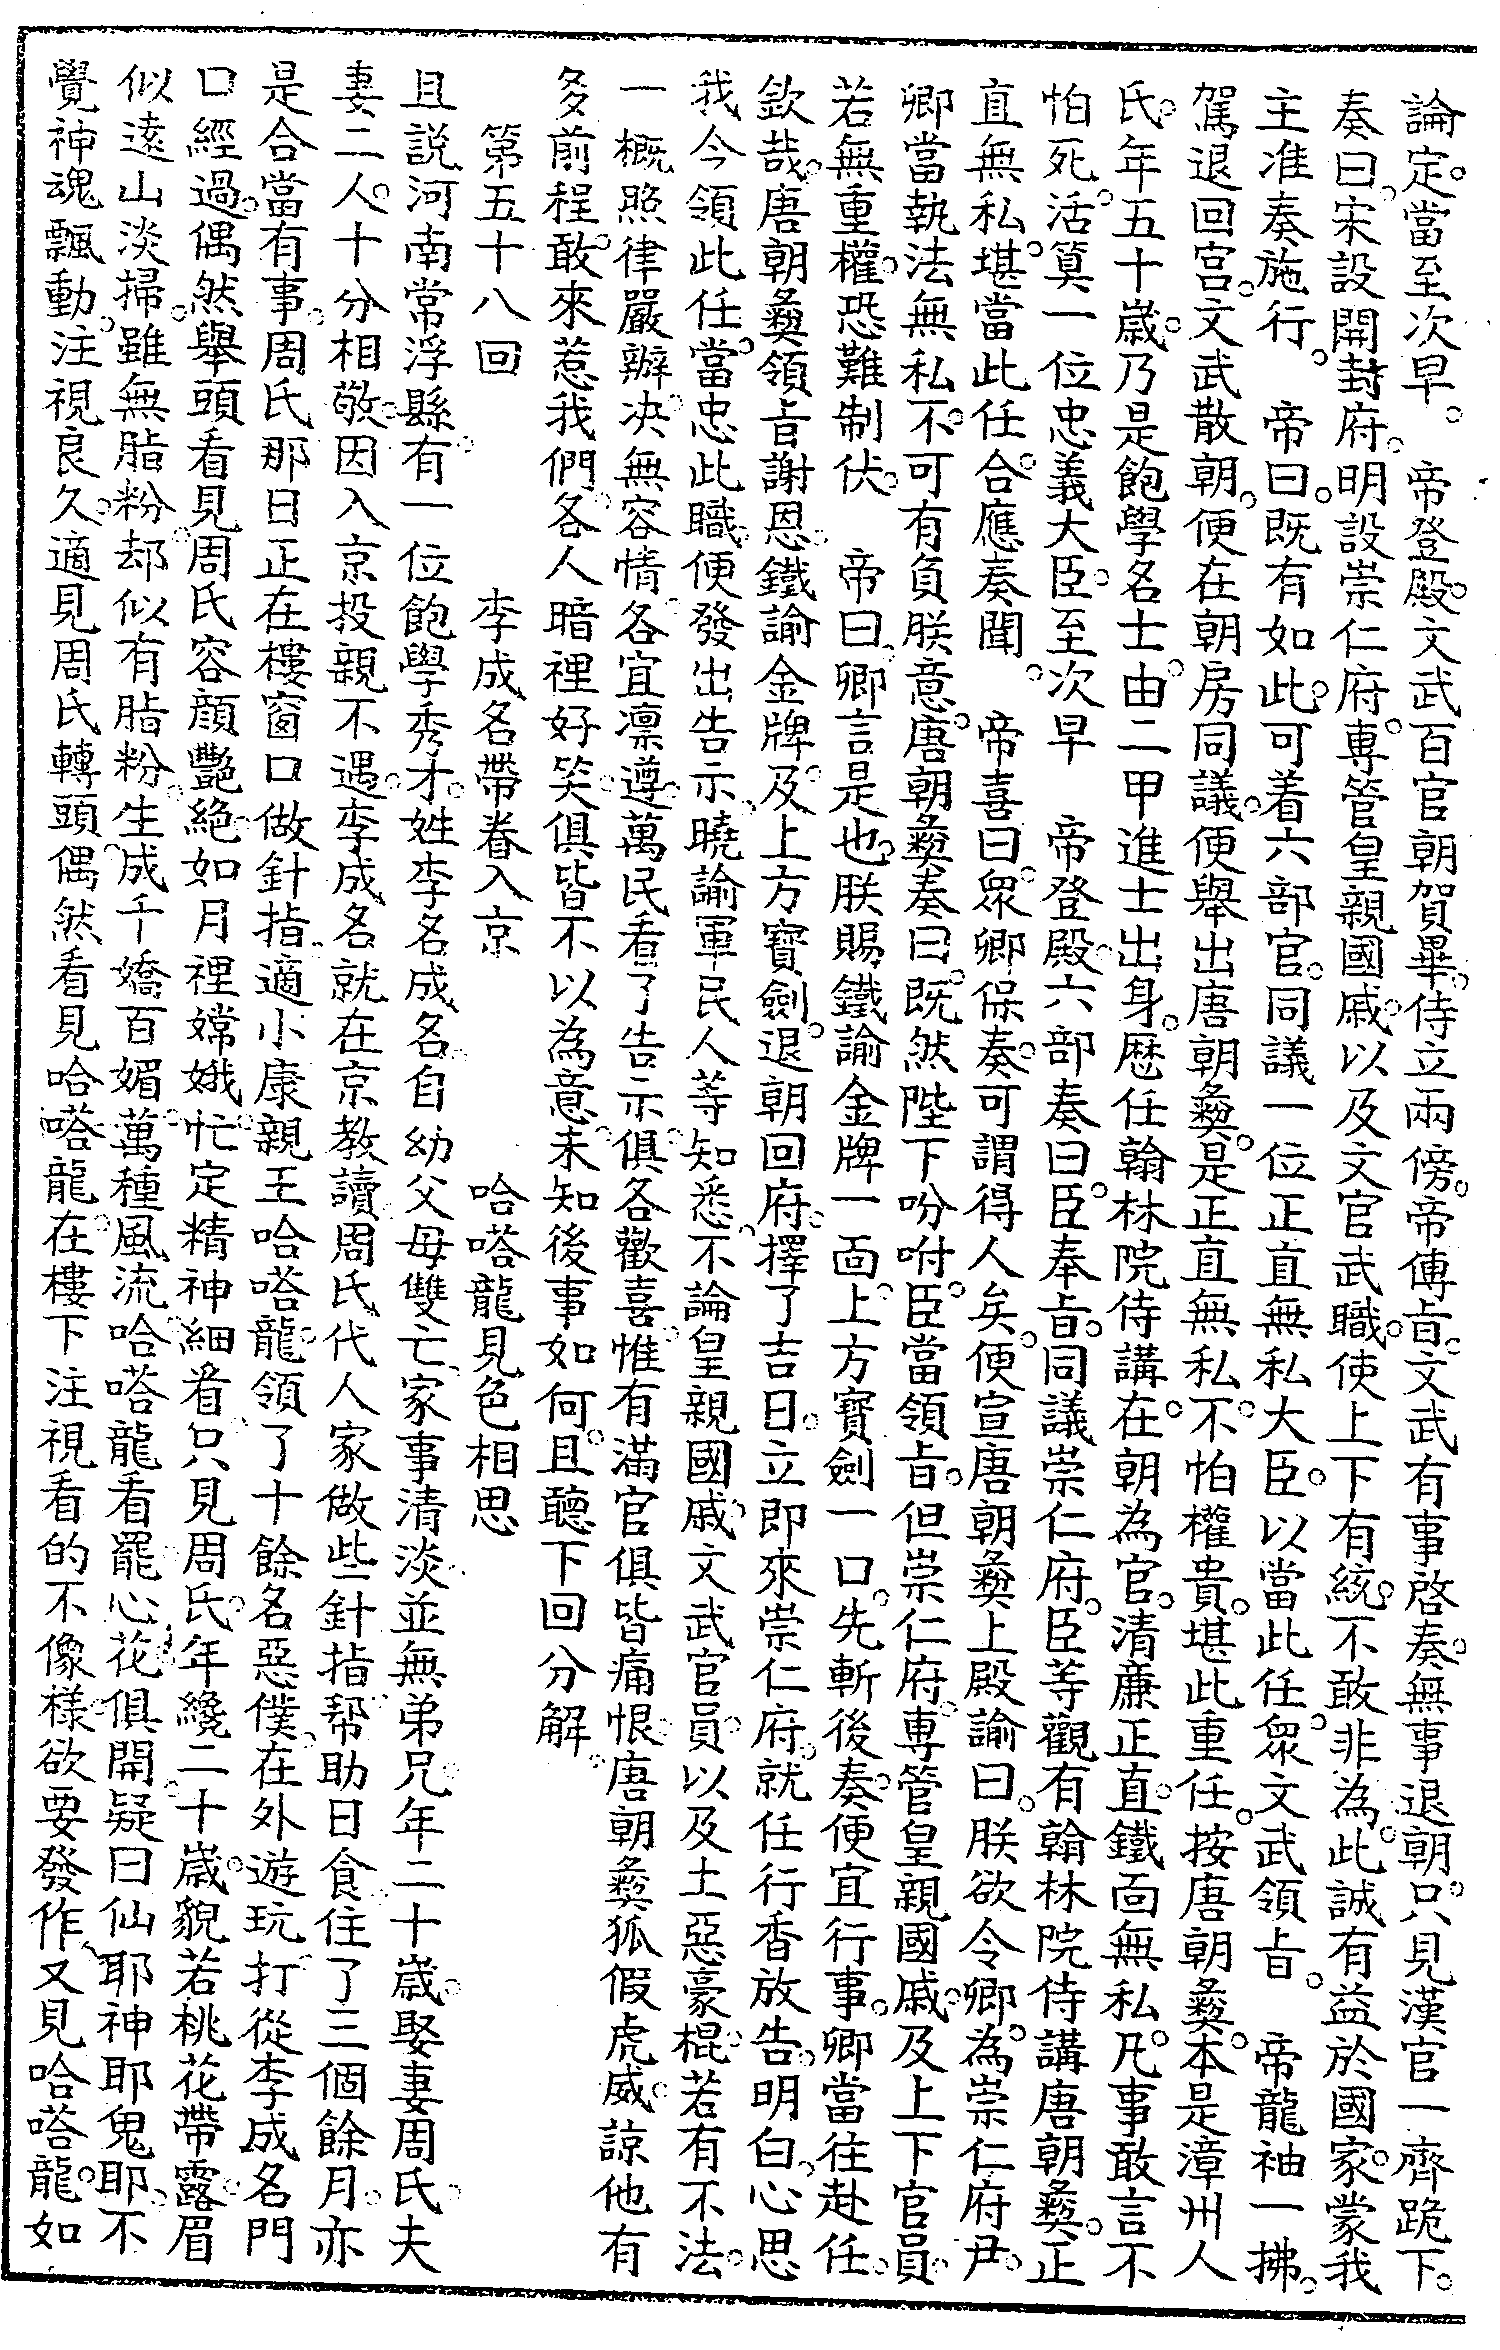 論定。當至次早。　帝登殿。文武百官朝賀畢。侍立兩傍。帝傳旨。文武有事啓奏。無事退朝。只見漢官一齊跪下。
奏曰。宋設開封府。明設崇仁府。專管皇親國戚。以及文官武職。使上下有統。不敢非為。此誠有益於國家。蒙我
主准奏施行。　帝曰。既有如此。可着六部官。同議一位正直無私大臣。以當此任。眾文武領旨。　帝龍袖一拂。
駕退回宮。文武散朝。便在朝房同議。便舉出唐朝彝。是正直無私。不怕權貴。堪此重任。按唐朝彝。本是漳州人
氏。年五十歲。乃是飽學名士。由二甲進士出身。歷任翰林院侍講。在朝為官。清廉正直。鐵面無私。凡事敢言不
怕死活。算一位忠義大臣。至次早　帝登殿。六部奏曰。臣奉旨。同議崇仁府。臣等觀有翰林院侍講唐朝彝。正
直無私。堪當此任。合應奏聞。　帝喜曰。眾卿保奏。可謂得人矣。便宣唐朝彝上殿諭曰。朕欲令卿。為崇仁府尹。
卿當執法無私。不可有負朕意。唐朝彝奏曰。既然陛下吩咐。臣當領旨。但崇仁府。專管皇親國戚。及上下官員。
若無重權。恐難制伏。　帝曰。卿言是也。朕賜鐵諭金牌一面。上方寶劍一口。先斬後奏。便宜行事。卿當往赴任。
欽哉。唐朝彝領旨謝恩。鐵諭金牌。及上方寶劍。退朝回府。擇了吉日。立即來崇仁府。就任行香放告。明白。心思
我今領此任。當忠此職。便發出告示。曉諭軍民人等知悉。不論皇親國戚。文武官員。以及土惡豪棍。若有不法。
一概照律嚴辦。決無容情。各宜凛遵。萬民看了告示。俱各歡喜。惟有滿官俱皆痛恨。唐朝彝狐假虎威。諒他有
多前程。敢來惹我們。各人暗裡好笑。俱皆不以為意。未知後事如何。且聽下回分解。
第五十八回　　　李成名帶眷入京　　　哈嗒龍見色相思
且說河南常浮縣。有一位飽學秀才。姓李名成名。自幼父母雙亡。家事清淡。並無弟兄。年二十歲。娶妻周氏。夫
妻二人。十分相敬。因入京投親不遇。李成名就在京教讀。周氏代人家做些針指。幫助日食。住了三個餘月。亦
是合當有事。周氏那日正在樓窗口做針指。適小康親王哈嗒龍。領了十餘名惡僕。在外遊玩。打從李成名門
口經過。偶然舉頭看見。周氏容顏艷絕。如月裡嫦娥。忙定精神細看。只見周氏。年纔二十歲。貌若桃花帶露。眉
似遠山淡掃。雖無脂粉。却似有脂粉。生成千嬌百媚。萬種風流。哈嗒龍看罷。心花俱開。疑曰仙耶神耶鬼耶。不
覺神魂飄動。注視良久。適見周氏轉頭。偶然看見哈嗒龍。在樓下注視看的不像樣。欲要發作。又見哈嗒龍。如